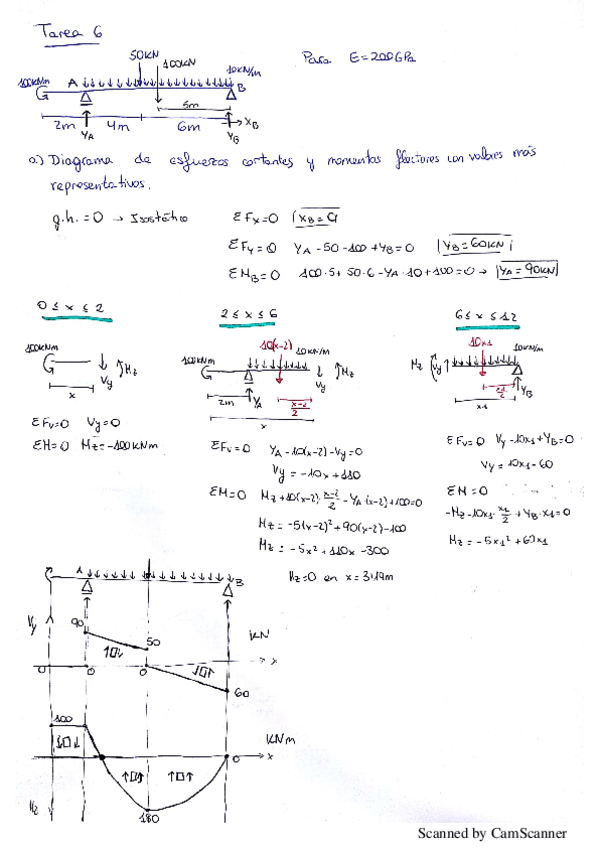 Tarea 6
Para E=200GPa
50KN
100KN
100KNm A 10KN/m B
5m
2m 4m 6m XB
YA YB
a) Diagrama de esfuerzos cortantes y momentos flectores con valores más
representativos.
g.h. = 0 → Isostático
ΣFx=0 XB=0
ΣFy=0 YA-50-100+YB=0 YB=60KN
ΣMB=0 100·5+50·6-YA·10+100=0 → YA=90KN
0≤x≤2
100KNm Mz
Vy
x
ΣFv=0 Vy=0
ΣM=0 Mz=-100KNm
2≤x≤6
10(x-2) 10KN/m
100KNm Mz
Vy
2m YA x-2/2
x
ΣFv=0 YA-10(x-2)-Vy=0
Vy=-10x+110
ΣM=0 Mz+10(x-2)·x-2/2-YA·(x-2)+100=0
Mz=-5(x-2)²+90(x-2)-100
Mz=-5x²+110x-300
Mz=0 en x=3,19m
6≤x≤12
10x1 10KN/m
Mz Vy
x1/2 YB
x1
ΣFv=0 Vy-10x1+YB=0
Vy=10x1-60
ΣM=0
-Mz-10x1·x1/2+YB·x1=0
Mz=-5x1²+60x1
A B
Vy 90 50 KN
0 0 0 x
60
100 KNm
0 x
Mz 180
Scanned by CamScanner